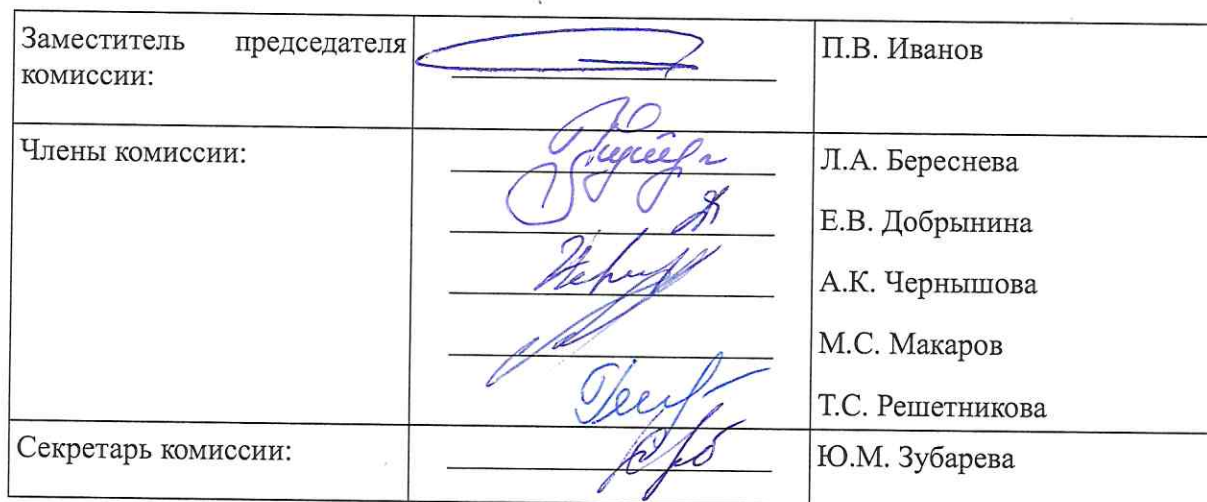 Заместитель председателя
комиссии:
П.В. Иванов
Члены комиссии:
Л.А. Береснева
Е.В. Добрынина
А.К. Чернышова
М.С. Макаров
Т.С. Решетникова
Секретарь комиссии:
Ю.М. Зубарева